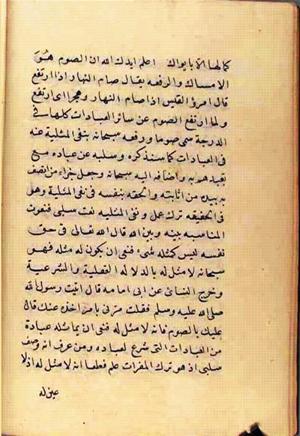 كمالها الا بابواك اعلم ايدك الله ان الصوم هو
الامساك والرفعه يقال صام النهار اذا ارتفع
قال امرؤ القيس اذا صام النهار وهجرا اى ارتفع
ولما ارتفع الصوم عن سائر العبادات كلها فى
الدرجة سمى صوما ورفعه سبحانه بنفى المثلية عنه
فى العبادات كما سنذكره وسلبه عن عباده مع
تعبدهم به واضافه اليه سبحانه وجعل جزاء من اتصف
به بيده من انائيته والحقه بنفسه فى نفى المثلية وهو
فى الحقيقه ترك عمل ونفى المثليه نعت سلبى فتقوت
المناسبه بينه وبين الله قال الله تعالى فى حق
نفسه ليس كمثله شىء فنفى ان يكون له مثله فهو
سبحانه لا مثل له بالدلالة العقلية والشرعية
وخرج النسائى عن ابى امامه قال اتيت رسول الله
صلى الله عليه وسلم فقلت مرنى بامر اخذه عنك قال
عليك بالصوم فانه لا مثل له فنفى ان يماثله عبادة
من العبادات التى شرع لعباده ومن عرف انه وصف
سلبى اذ هو ترك المفطرات علم قطعا انه لا مثل له اذ لا
عين له